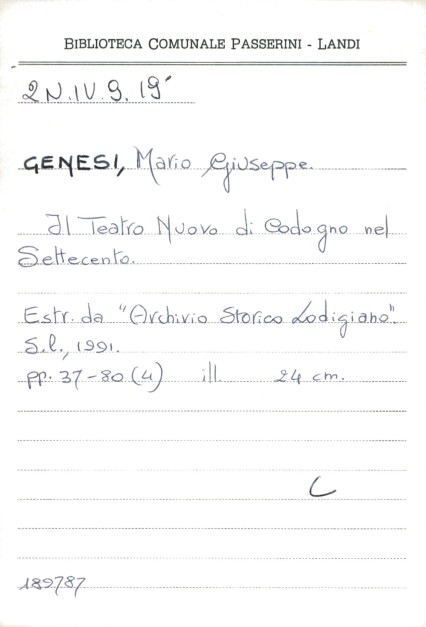 BIBLIOTECA COMUNALE PASSERINI - LANDI
2N.IV.9.19'
GENESI, Mario Giuseppe.
Il Teatro Nuovo di Codogno nel
Settecento.
Estr. da "Archivio Storico Lodigiano".
S.l., 1991.
pp. 37-80 (4) ill. 24 cm.
C
189787